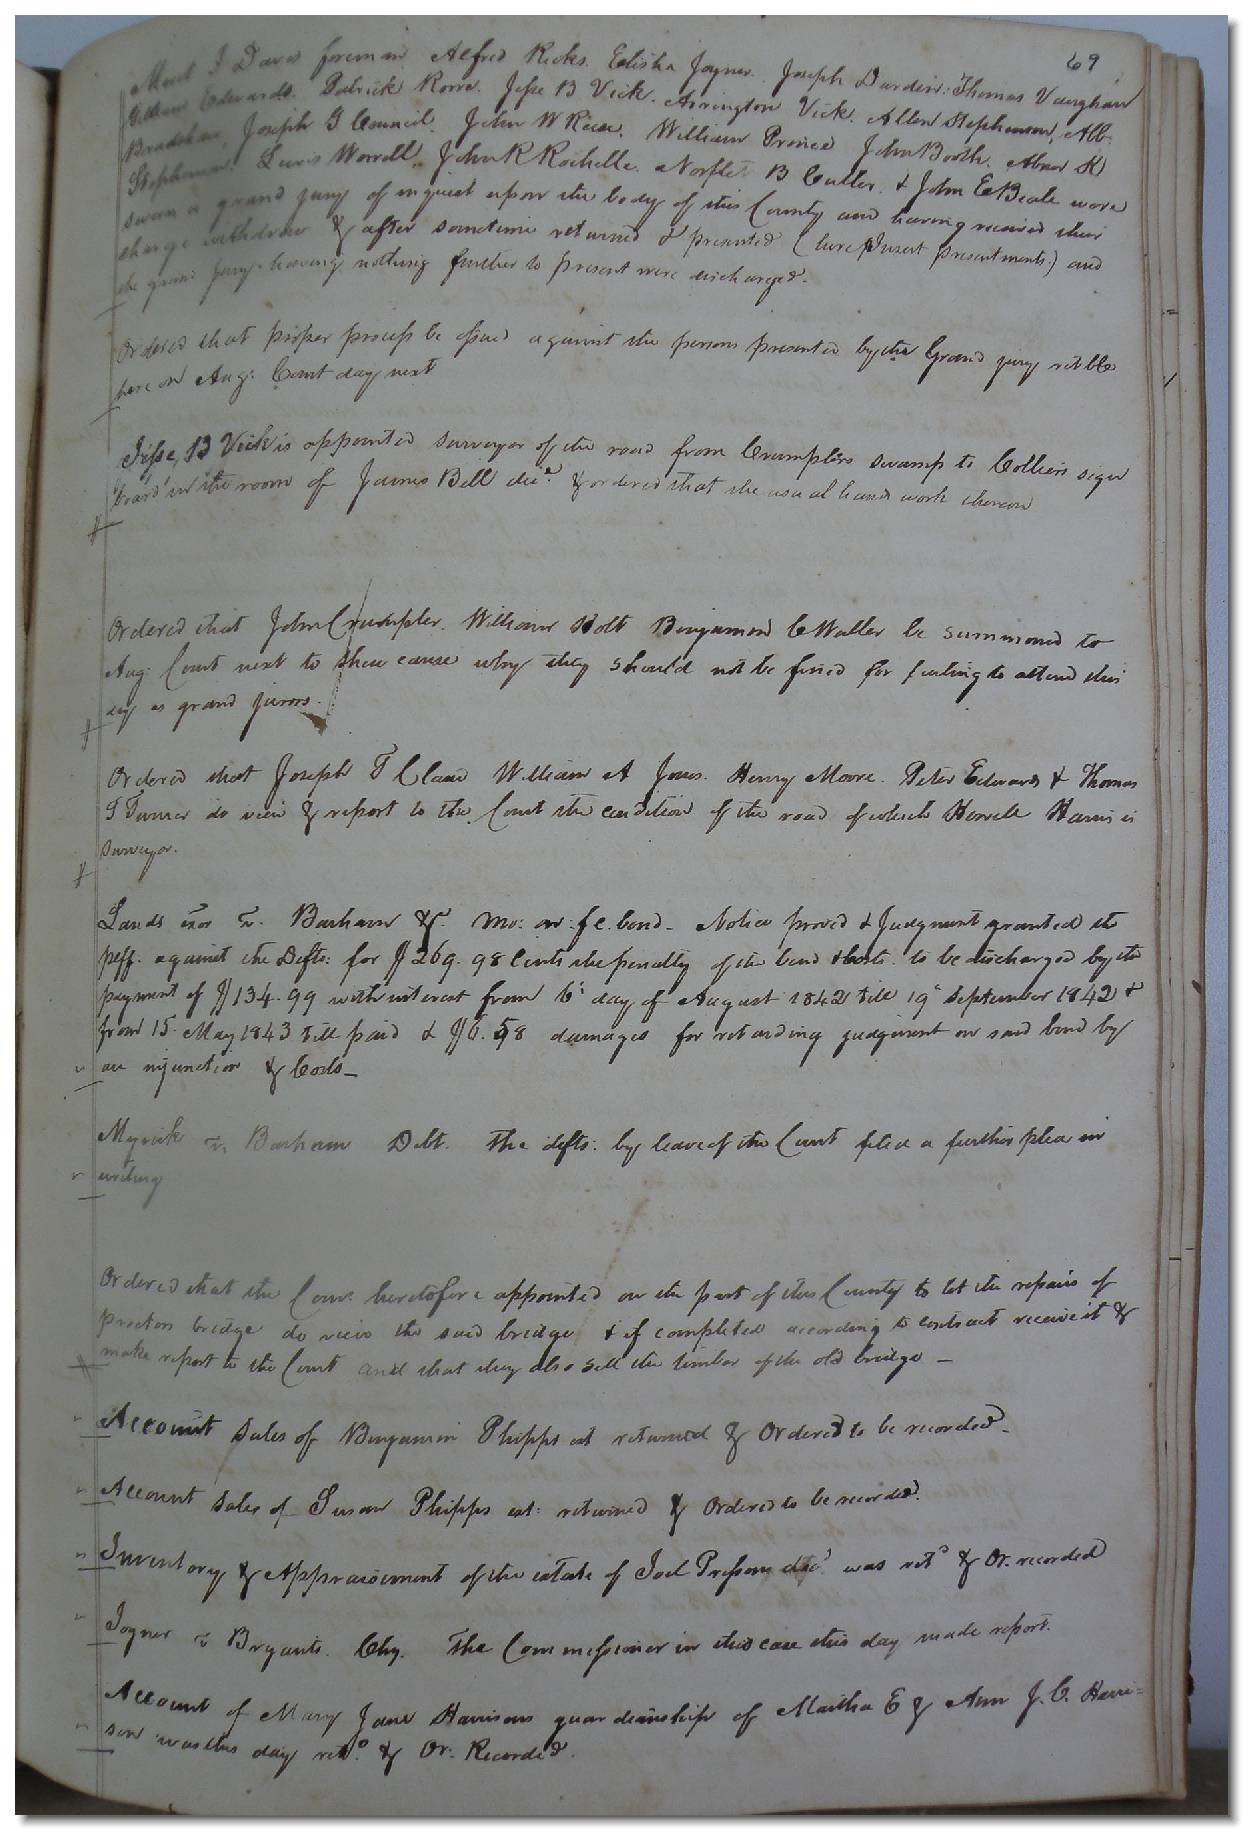 69
J Davis foreman, Alfred Ricks. Elisha Joyner. Joseph Darden. Thomas Vaughan
William Edwards. Patrick Rowe. Jesse B Vick. Arrington Vick. Allen Stephenson, Alb:
Bradshaw, Joseph G Council. John W Reese. William Prince John Booth. Abner K
Stephenson. Lewis Worrell. John R Rochelle. Norflet B Cutler. & John E Beale were
sworn a grand jury of inquest upon the body of this County and having received their
charge withdrew & after sometime returned & presented (here Insert presentments.) and
the grand jury having nothing further to present were discharged.
Ordered that proper process be issued against the persons presented by the Grand jury retble
here on Aug: Court day next
Jesse B Vick is appointed surveyor of the road from Crumplers swamp to Colliers sign
board in the room of James Bell decd. & ordered that the usual hands work thereon
Ordered that John Crumpler. William Holt Benjamin C Waller be summoned to
Aug: Court next to shew cause why they should not be fined for failing to attend this
day as grand jurors.
Ordered that Joseph T Claud William A Jones. Henry Moore. Peter Edwards & Thomas
J Turner do view & report to the Court the condition of the road of which Howell Harris is
surveyor.
Lands exor vs. Barham &c. Mo: on: f.c. bond. Notice proved & Judgment granted the
plff. against the Defts: for $269.98 Cents the penalty of the bond & costs. to be discharged by the
payment of $134.99 with interest from 6th day of August 1842 till 19th September 1842 &
from 15 May 1843 till paid & $6.58 damages for retarding judgment on said bond by
an injunction & Costs_
Myrick vs. Barham Debt. The defts: by leave of the Court filed a further plea in
writing
Ordered that the Comr. heretofore appointed on the part of this County to let the repairs of
proctors bridge do view the said bridge & if completed according to contract receive it &
make report to the Court and that they also sell the timber of the old bridge _
Account Sales of Benjamin Phipps est returned & Ordered to be recorded.
Account Sales of Susan Phipps est: returned & Ordered to be recorded.
Inventory & Appraisement of the estate of Joel Presson decd. was retd. & Or. recorded
Joyner vs Bryants. Chy. The Commissioner in this case this day made report.
Account of Mary Jane Harrisons guardianship of Martha E & Ann J. C. Harri=
son was this day retd. & Or: Recorded.